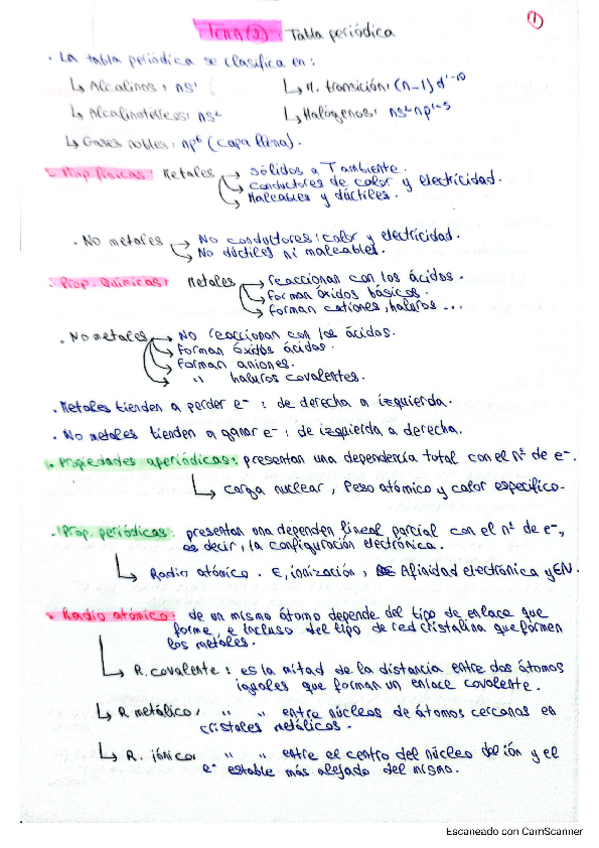 Tema(2): Tabla periódica
1
· La tabla periódica se clasifica en:
↳ Alcalinos: ns¹
↳ M. transición: (n-1)d¹⁻¹⁰
↳ Alcalinotérreos: ns²
↳ Halógenos: ns²np¹⁻⁵
↳ Gases nobles: np⁶ (capa llena).
· Prop físicas: Metales → sólidos a T ambiente.
→ conductores de calor y electricidad.
→ Maleables y dúctiles.
· No metales → No conductores: calor y electricidad.
→ No dúctiles ni maleables.
· Prop. Químicas: Metales → reaccionan con los ácidos.
→ Forman óxidos básicos.
→ Forman cationes, haluros ...
· No metales → No reaccionan con los ácidos.
→ Forman óxidos ácidos.
→ Forman aniones.
→ " haluros covalentes.
· Metales tienden a perder e⁻: de derecha a izquierda.
· No metales tienden a ganar e⁻: de izquierda a derecha.
· Propiedades aperiódicas: presentan una dependencia total con el nº de e⁻.
↳ Carga nuclear, Peso atómico y calor especifico.
· Prop. periódicas: presentan una dependen lineal parcial con el nº de e⁻,
es decir, la configuración electrónica.
↳ Radio atómico. E, ionización, Afinidad electrónica y EN.
· Radio atómico: de un mismo átomo depende del tipo de enlace que
forme, e incluso del tipo de red cristalina que formen
los metales.
↳ R. covalente: es la mitad de la distancia entre dos átomos
iguales que forman un enlace covalente.
↳ R metálico: " " entre núcleos de átomos cercanos en
cristales metálicos.
↳ R. iónico: " " entre el centro del núcleo del ión y el
e⁻ estable más alejado del mismo.
Escaneado con CamScanner